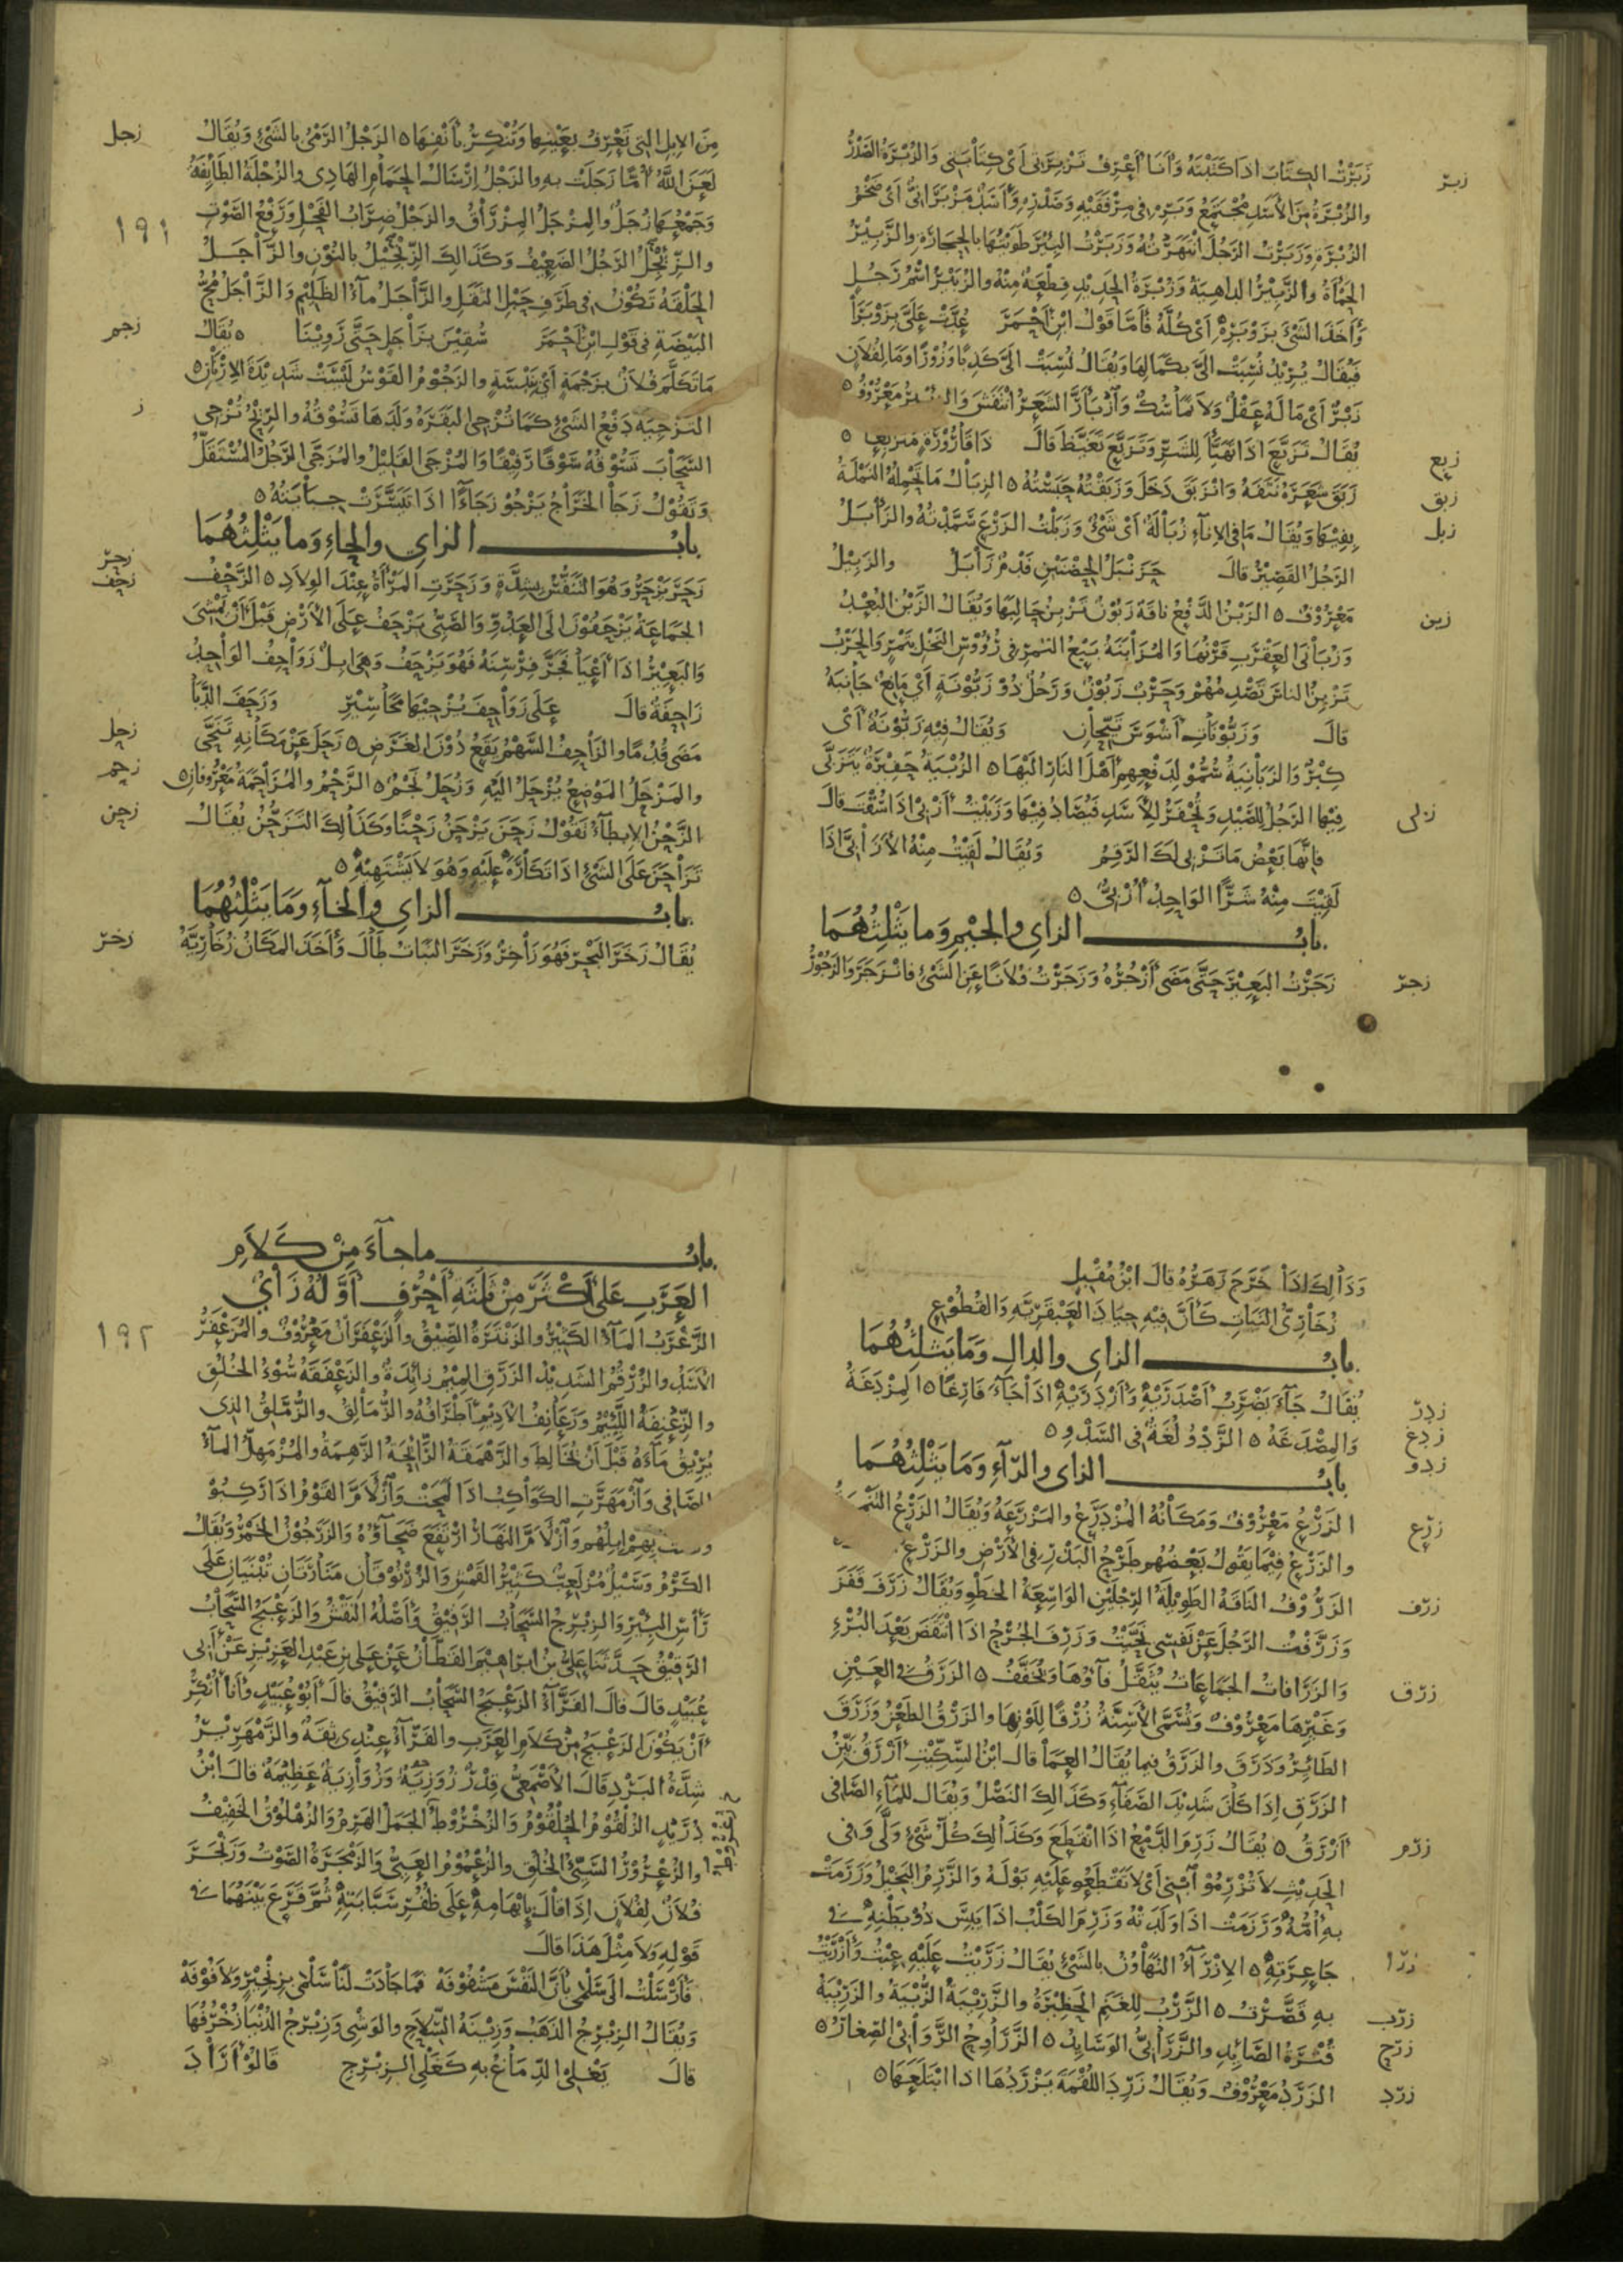 زبر
زَبَرْتُ الكِتَابَ اذا كَتَبْتَهُ وَأنا أَعْرِفُ تَزْبِرَتى أىْ كِتابَتى وَالزُّبْرَةُ الصَّدْرُ
والزُّبْرَةُ مِنَ الأَسَدِ مُجْتَمَعُ وَبَرِهِ فى مِرْفَقَيْهِ وَصَدْرِهِ وَأَسَدٌ مَزْبَرَانىٌّ أىْ ضَخْمُ
الزُّبْرَةِ وَزَبَرْتُ الرَّجُلَ انْتَهَرْتُهُ وَزَبَرْتُ البِئْرَ طَوَيْتُهَا بالحِجَارَةِ والزَّبِيْرُ
الحَمْأَةُ والزَّبِيْرُ الداهِيَةُ وَزُبْرَةُ الحَدِيْدِ قِطْعَةٌ مِنْهُ والزُّبَيْرُ اسْمُ رَجُلٍ
وَأَخَذَ الشَىْءَ بِزَوْبَرِهِ أىْ كُلَّهُ فَأمّا قَوْلُ ابْنِ أَحْمَرَ عُدَّتْ عَلَىَّ بِزَوْبَرَا
فَيُقَالُ يُرِيْدُ نُسِبَتْ الَىَّ بِكَمَالِهَا وَيُقَالُ نُسِبَتْ الَىَّ كَذِبًا وَزُوْرًا وَمَا لِفُلاَنٍ
زَبْرٌ أىْ مَا لَهُ عَقْلٌ وَلاَ تَمَاسُكٌ وَازْبَأَرَّ الشَعَرُ انْتَفَشَ مَعْرُوْفٌ ٥
زبع
يُقَالُ تَزَبَّعَ اذا تَهَيَّأَ لِلشَرِّ وَتَزَبَّعَ تَغَيَّظَ قالَ ذَا قَارُوْرَةٍ مُتَزَبِّعَا ٥
زبق
زَبَقَ شَعَرَهُ نَتَفَهُ وَانْزَبَقَ دَخَلَ وَزَبَقْتُهُ حَبَسْتُهُ ٥ الزِبَالُ مَا تَحْمِلُهُ النَمْلَةُ
زبل
بِفِيْهَا وَيُقَالُ مَا فى الاِنآءِ زُبَالَةٌ أىْ شَىْءٌ وَزَبَلْتُ الزَرْعَ سَمَّدْتُهُ والزَأْبَلُ
الرَجُلُ القَصِيْرُ قالَ حَزَنْبَلُ الحِضْنَيْنِ فَدْمٌ زَأْبَلُ والزَبِيْلُ
زبن
مَعْرُوْفٌ ٥ الزَبْنُ الدَّفْعُ ناقَةٌ زَبُوْنٌ تَزْبِنُ حَالِبَهَا وَيُقَالُ الزَّبْنُ البُعْدُ
وَزُبَانَى العَقْرَبِ قَرْنُهَا وَالمُزَابَنَةُ بَيْعُ التَمْرِ فى رُؤُوْسِ النَخْلِ بِتَمْرٍ وَالحَرْبُ
تَزْبِنُ الناسَ تَصْدِمُهُمْ وَحَرْبٌ زَبُوْنٌ وَرَجُلٌ ذُوْ زَبُّوْنَةٍ أىْ مَانِعٌ جَانِبَهُ
قالَ وَزَبُّوْنَاتِ أَشْوَسَ تَيَّحَانِ وَيُقَالُ فِيْهِ زَبُّوْنَةٌ أىْ
كِبْرٌ وَالزَبَانِيَةُ سُمُّوْ لِدَفْعِهِمْ أهْلَ النارِ الَيْهَا ٥ الزُبْيَةُ حَفِيْرَةٌ يَتَزَبَّى
زبى
فِيْهَا الرَجُلُ لِلصَّيْدِ وَتُحْفَرُ لِلأَسَدِ فَيُصَادُ فِيْهَا وَزَبَيْتُ أَزْبى اذا سُقْتَ قالَ
فَإنَّهَا بَعْضُ مَا تَزْبى لَكَ الرَقِمُ وَيُقَالُ لَقِيْتُ مِنْهُ الأَزَابىَّ اذا
لَقِيْتَ مِنْهُ شَرًّا الوَاحِدُ أُزْبىٌّ ٥
بابُ الزاى والجيم وما يَثْلِثُهُمَا
زجر
زَجَرْتُ البَعِيْرَ حَتَّى مَضَى أَزْجُرُهُ وَزَجَرْتُ فُلاَنًا عَنِ الشَىْءِ فانْزَجَرَ وَالزَجُوْرُ
زجل
مِنَ الاِبِلِ التى تَعْرِفُ بِعَيْنِهَا وَتُنْكِرُ بأَنْفِهَا ٥ الزَجْلُ الرَّمْىُ بالشَىْءِ وَيُقَالُ
لَعَنَ اللّٰهُ أُمًّا زَجَلَتْ بهِ والزَجْلُ اِرْسَالُ الحَمَامِ الهَادِى والزُجْلَةُ الطَائِفَةُ
١٩١
وَجَمْعُهَا زُجَلٌ والمِزْجَلُ المِزْرَاقُ والزَجْلُ ضِرَابُ الفَحْلِ وَرَفْعُ الصَوْتِ
والزِئْجِلُ الرَجُلُ الضَعِيْفُ وَكَذَالِكَ الزِنْجِيْلُ بالنُوْنِ والزَاجَلُ
الحَلْقَةُ تَكُوْنُ فى طَرَفِ حَبْلِ الثَقَلِ والزَأْجَلُ مآءُ الظَلِيْمِ وَالزَاجَلُ مُحُّ
زجم
البَيْضَةِ فى قَوْلِ ابْنِ أَحْمَرَ سُقِيْنَ بِزَاجَلٍ حَتَّى رَوِيْنَا ٥ يُقَالُ
مَا تَكَلَّمَ فُلاَنٌ بِزَجْمَةٍ أىْ بِنَبْسَةٍ والزَجُوْمُ القَوْسُ لَيْسَتْ شَدِيْدَةَ الاِرْنَانِ ٥
ز
التَزْجِيَةُ دَفْعُ الشَىْءِ كَمَا تُزْجِى البَقَرَةُ وَلَدَهَا تَسُوْقُهُ والرِيْحُ تُزْجِى
السَّحَابَ تَسُوْقُهُ سَوْقًا رَفِيْقًا وَالمُزْجَى القَلِيْلُ والمُزَجَّى الرَجُلُ المُسْتَقَلُّ
وَتَقُوْلُ زَجَا الخَرَاجُ يَزْجُوْ زَجَاءً اذا تَيَسَّرَتْ جِبَايَتُهُ ٥
بابُ الزاى والحاءِ وما يَثْلِثُهُمَا
زحر
زَحَرَ يَزْحَرُ وَهُوَ التَنَفُّسُ بِشِدَّةٍ وَزَحَرَتِ المَرْأَةُ عِنْدَ الوِلاَدِ ٥ الزَحْفُ
زحف
الجَمَاعَةُ يَزْحَفُوْنَ الى العَدُوِّ وَالصَبِىُّ يَزْحَفُ عَلَى الأَرْضِ قَبْلَ أنْ يَمْشِىَ
وَالبَعِيْرُ اذا أَعْيَا فَجَرَّ فِرْسِنَهُ فَهُوَ يَزْحَفُ وَهِىَ اِبِلٌ زَوَاحِفُ الوَاحِدُ
زَاحِفَةٌ قالَ عَلَى زَوَاحِفَ نُزْجِيْهَا مَحَاسِيْرِ وَزَحَفَ الدَّبَا
مَضَى قُدُمًا والزَاحِفُ السَّهْمُ يَقَعُ دُوْنَ الغَرَضِ ٥ زَحَلَ عَنْ مَكَانِهِ تَنَحَّى
زحل
والمَزْحَلُ المَوْضِعُ يُزْحَلُ الَيْهِ وَزُحَلُ نَجْمٌ ٥ الزَحْمُ والمُزَاحَمَةُ مَعْرُوفَانِ ٥
زحم
زحن
الزَّحْنُ الاِبطآءُ تَقُوْلُ زَحَنَ يَزْحَنُ زَحْنًا وَكَذَالِكَ التَزَحُّنُ يُقَالُ
تَزَاحَنَ عَلَى الشَىْءِ اذا تَكَارَهَ عَلَيْهِ وَهُوَ لاَ يَشْتَهِيْهِ ٥
بابُ الزاى والخآءِ وَمَا يَثْلِثُهُمَا
زخر
يُقَالُ زَخَرَ البَحْرُ فَهُوَ زَاخِرٌ وَزَخَرَ النَبَاتُ طَالَ وَأَخَذَ المَكَانُ زُخَارِيَّهُ
وَذَالِكَ اذا خَرَجَ زَهَرُهُ قالَ ابْنُ مُقْبِلٍ
زُخَارِىَّ النَبَاتِ كَأَنَّ فِيْهِ جِيَادَ العَبْقَرِيَّةِ وَالقُطُوْعِ
بابُ الزاى والدال وَمَا يَثْلِثُهُمَا
زدر
يُقَالُ جَآءَ يَضْرِبُ أَصْدَرَيْهِ وَأَزْدَرَيْهِ اذا جَآءَ فَارِغًا ٥ المِزْدَغَةُ
زدغ
وَالمِصْدَغَةُ ٥ الزَّدْوُ لُغَةٌ فى السَدْوِ ٥
زدو
بابُ الزاى والرّآءِ وَمَا يَثْلِثُهُمَا
زرع
الزَرْعُ مَعْرُوْفٌ وَمَكَانُهُ المُزْدَرَعُ والمَزْرَعَةُ وَيُقَالُ الزَرْعُ
والزَرْعُ فِيْمَا يَقُوْلُ بَعْضُهُم طَرْحُ البَذْرِ فى الأَرْضِ والزَرْعُ
زرف
الزَرُوْفُ النَاقَةُ الطَوِيْلَةُ الرِجْلَيْنِ الوَاسِعَةُ الخَطْوِ وَيُقَالُ زَرَفَ قَفَزَ
وَزَرَّفْتُ الرَجُلَ عَنْ نَفْسِى نَحَّيْتُ وَزَرِفَ الجُرْحُ اذا انْتَقَضَ بَعْدَ البُرْءِ
زرق
وَالزَرَافَاتُ الجَمَاعَاتُ يُثَقَّلُ فآؤُهَا وَيُخَفَّفُ ٥ الزَرَقُ فى العَيْنِ
وَغَيْرِهَا مَعْرُوْفٌ وَتُسَمَّى الأَسِنَّةُ زُرْقًا لِلَوْنِهَا والزَرْقُ الطَعْنُ وَزَرَقَ
الطَائِرُ وَذَرَقَ والزَرَقُ فيما يُقَالُ العَمَا قال ابْنُ السِّكِّيْتِ أَزْرَقُ بَيِّنُ
الزَرَقِ اِذَا كَانَ شَدِيْدَ الصَفَآءِ وَكَذَالِكَ النَصْلُ وَيُقَالُ لِلمآءِ الصَّافى
زرم
أَزْرَقُ ٥ يُقَالُ زَرِمَ الدَّمْعُ اذا انْقَطَعَ وَكَذَالِكَ كُلُّ شَىْءٍ وَلَّى وَفى
الحَدِيْثِ لاَ تُزْرِمُوْ اْبْنِى أىْ لاَ تَقْطَعُو عَلَيْهِ بَوْلَهُ وَالزَّرِمُ البَخِيْلُ وَزَرَمَتْ
بهِ أُمُّهُ وَزَرَمَتْ اذا وَلَدَتْهُ وَزَرِمَ الكَلْبُ اذا يَبِسَ ذُوْ بَطْنِهِ فى
زرا
جَاعِرَتِهِ ٥ الاِزْرَآءُ التَهَاوُنُ بالشَىْءِ يُقَالُ زَرَيْتُ عَلَيْهِ عِبْتُ وَأَزْرَيْتُ
زرب
بهِ قَصَّرْتُ ٥ الزَّرْبُ لِلغَنَمِ الحَظِيْرَةُ والزَّرِيْبَةُ الزُّبْيَةُ والزَرِيْبَةُ
زرح
قُتْرَةُ الصَّائِدِ والزَّرَابىُّ الوَسَايِدُ ٥ الزَّرَاوِحُ الرَّوَابى الصِّغَارُ ٥
زرد
الزَرَدُ مَعْرُوْفٌ وَيُقَالُ زَرِدَ اللُقْمَةَ يَزْرَدُهَا اذا ابْتَلَعَهَا ٥
بابُ ما جآءَ مِنْ كَلاَمِ
العَرَبِ عَلَى أَكْثَرَ مِنْ ثَلثَةِ أَحْرُفٍ أَوَّلُهُ زَاىٌ
١٩٢
الزَّغْرَبُ المَآءُ الكَثِيْرُ والزَنْتَرَةُ الضِيْقُ والزَعْفَرَانُ مَعْرُوْفٌ والمُزَعْفَرُ
الأَسَدُ والزُرْقُمُ الشَدِيْدُ الزَرَقِ المِيْمُ زَائِدَةٌ والزَعْفَقَةُ سُوْءُ الخُلُقِ
والزِّعْنِفَةُ اللَئِيْمُ وَزَعَانِفُ الأَدِيْمِ أَطْرَافُهُ والزُّمَالِقُ والزُّمَّلِقُ الذى
يُرِيْقُ مآءَهُ قَبْلَ أنْ يُخَالِطَ والزَهْمَقَةُ الرَّائِحَةُ الزَهِمَةُ والمُزْمَهِلُّ المآءُ
الصَّافى وَازْمَهَرَّتِ الكَوَاكِبُ اذا لَمَحَتْ وَازْلأَمَّ القَوْمُ اذا رَكِبُوْ
بِهِمْ اِبِلُهُمْ وَازْلأَمَّ النَهَارُ ارْتَفَعَ ضَحَاؤُهُ وَالزَرَجُوْنُ الخَمْرُ وَيُقَالُ
الكَرْمُ وَسَيْلٌ مُزْلَعِبٌّ كَثِيْرُ القَمْشِ وَالزُرْنُوْقَانِ مَنَارَتَانِ تُبْنَيَانِ عَلَى
رَأْسِ البِئْرِ وَالزِبْرِجُ السَّحَابُ الرَقِيْقُ وَأَصْلُهُ النَقْشُ وَالزَعْبَجُ السَّحَابُ
الرَقِيْقُ حَدَّثَنَا عَلِىُّ بنُ ابراهِيْمَ القَطَّانُ عَنْ عَلِى بنِ عَبْدِ العَزِيْزِ عَنْ أَبى
عُبَيْدٍ قالَ قالَ الفَرَّآءُ الزَعْبَجُ السَّحَابُ الرَقِيْقُ قالَ أَبُوْ عُبَيْدٍ وَأَنَا أُنْكِرُ
أنْ يَكُوْنَ الزَعْبَجُ مِنْ كَلاَمِ العَرَبِ والفَرَّآءُ عِنْدِى ثِقَةٌ والزَّمْهَرِيْرُ
شِدَّةُ البَرْدِ قَالَ الأَصْمَعِىُّ قِدْرٌ زُوَزِيَةٌ وَزُوَازِيَةٌ عَظِيْمَةٌ قالَ ابْنُ
دُرَيْدٍ الزُلْقُوْمُ الحُلْقُوْمُ وَالزُخْرُوْطُ الجَمَلُ الهَرِمُ وَالزُهْلُوْقُ الخَفِيْفُ
والزُعْرُوْرُ السَّيِّئُ الخُلُقِ والزَمْجَرَةُ الصَوْتُ وَزَنْجَرَ
فُلاَنٌ لِفُلاَنٍ اِذَا قالَ بِإِبْهَامِهِ عَلَى ظُفْرِ سَبَّابَتِهِ ثُمَّ قَرَعَ بَيْنَهُمَا فى
قَوْلِهِ وَلاَ مِثْلَ هَذَا قالَ
فَأَرْسَلْتُ الى سَلْمى بِأَنَّ النَفْسَ مَشْغُوْفَهْ فَمَا جَادَتْ لَنَا سَلْمى بِزِنْجِيْرٍ وَلاَ فُوْفَهْ
وَيُقَالُ الزِبْرِجُ الذَهَبُ وَزِيْنَةُ السِّلاَحِ والوَشْىِ وَزِبْرِجُ الدُنْيَا زُخْرُفُهَا
قالَ يَغْلى الدِّمَاغُ بهِ كَغَلْىِ الزِبْرِجِ قَالُوْ أَرَادَ